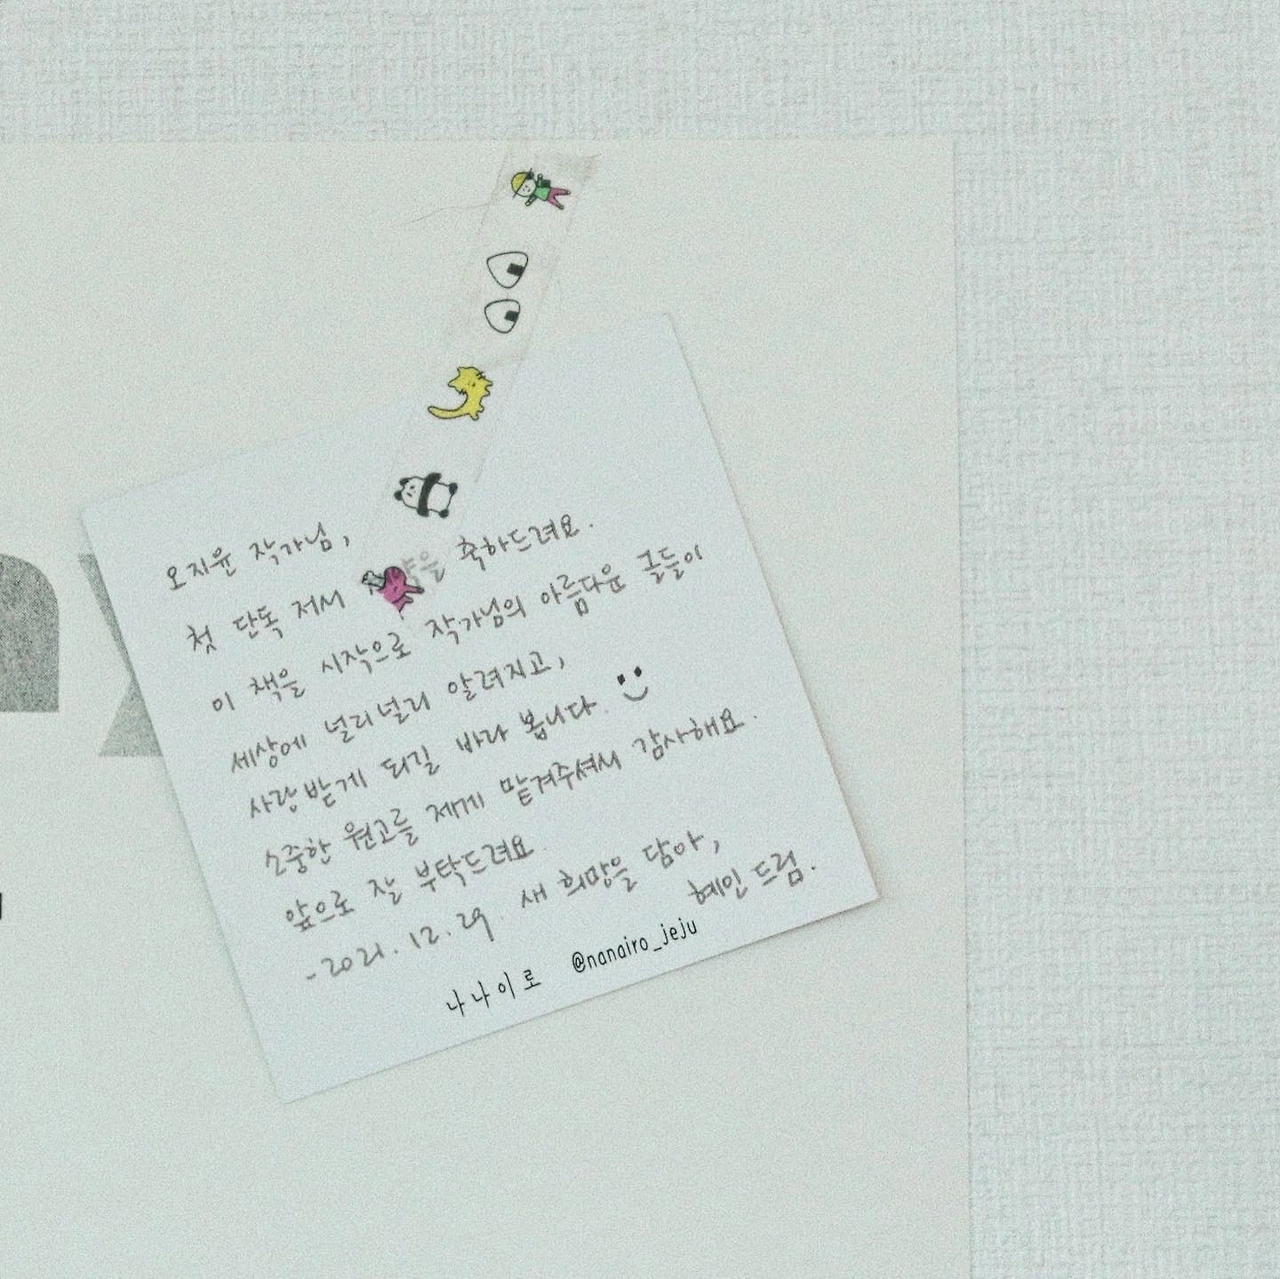 오지윤 작가님,
첫 단독 저서 축하드려요.
이 책을 시작으로 작가님의 아름다운 글들이
세상에 널리널리 알려지고,
사랑받게 되길 바라 봅니다.
소중한 원고를 제게 맡겨주셔서 감사해요.
앞으로 잘 부탁드려요.
-2021.12.29. 새 희망을 담아,
혜인 드림.
나나이로 @nanairo_jeju